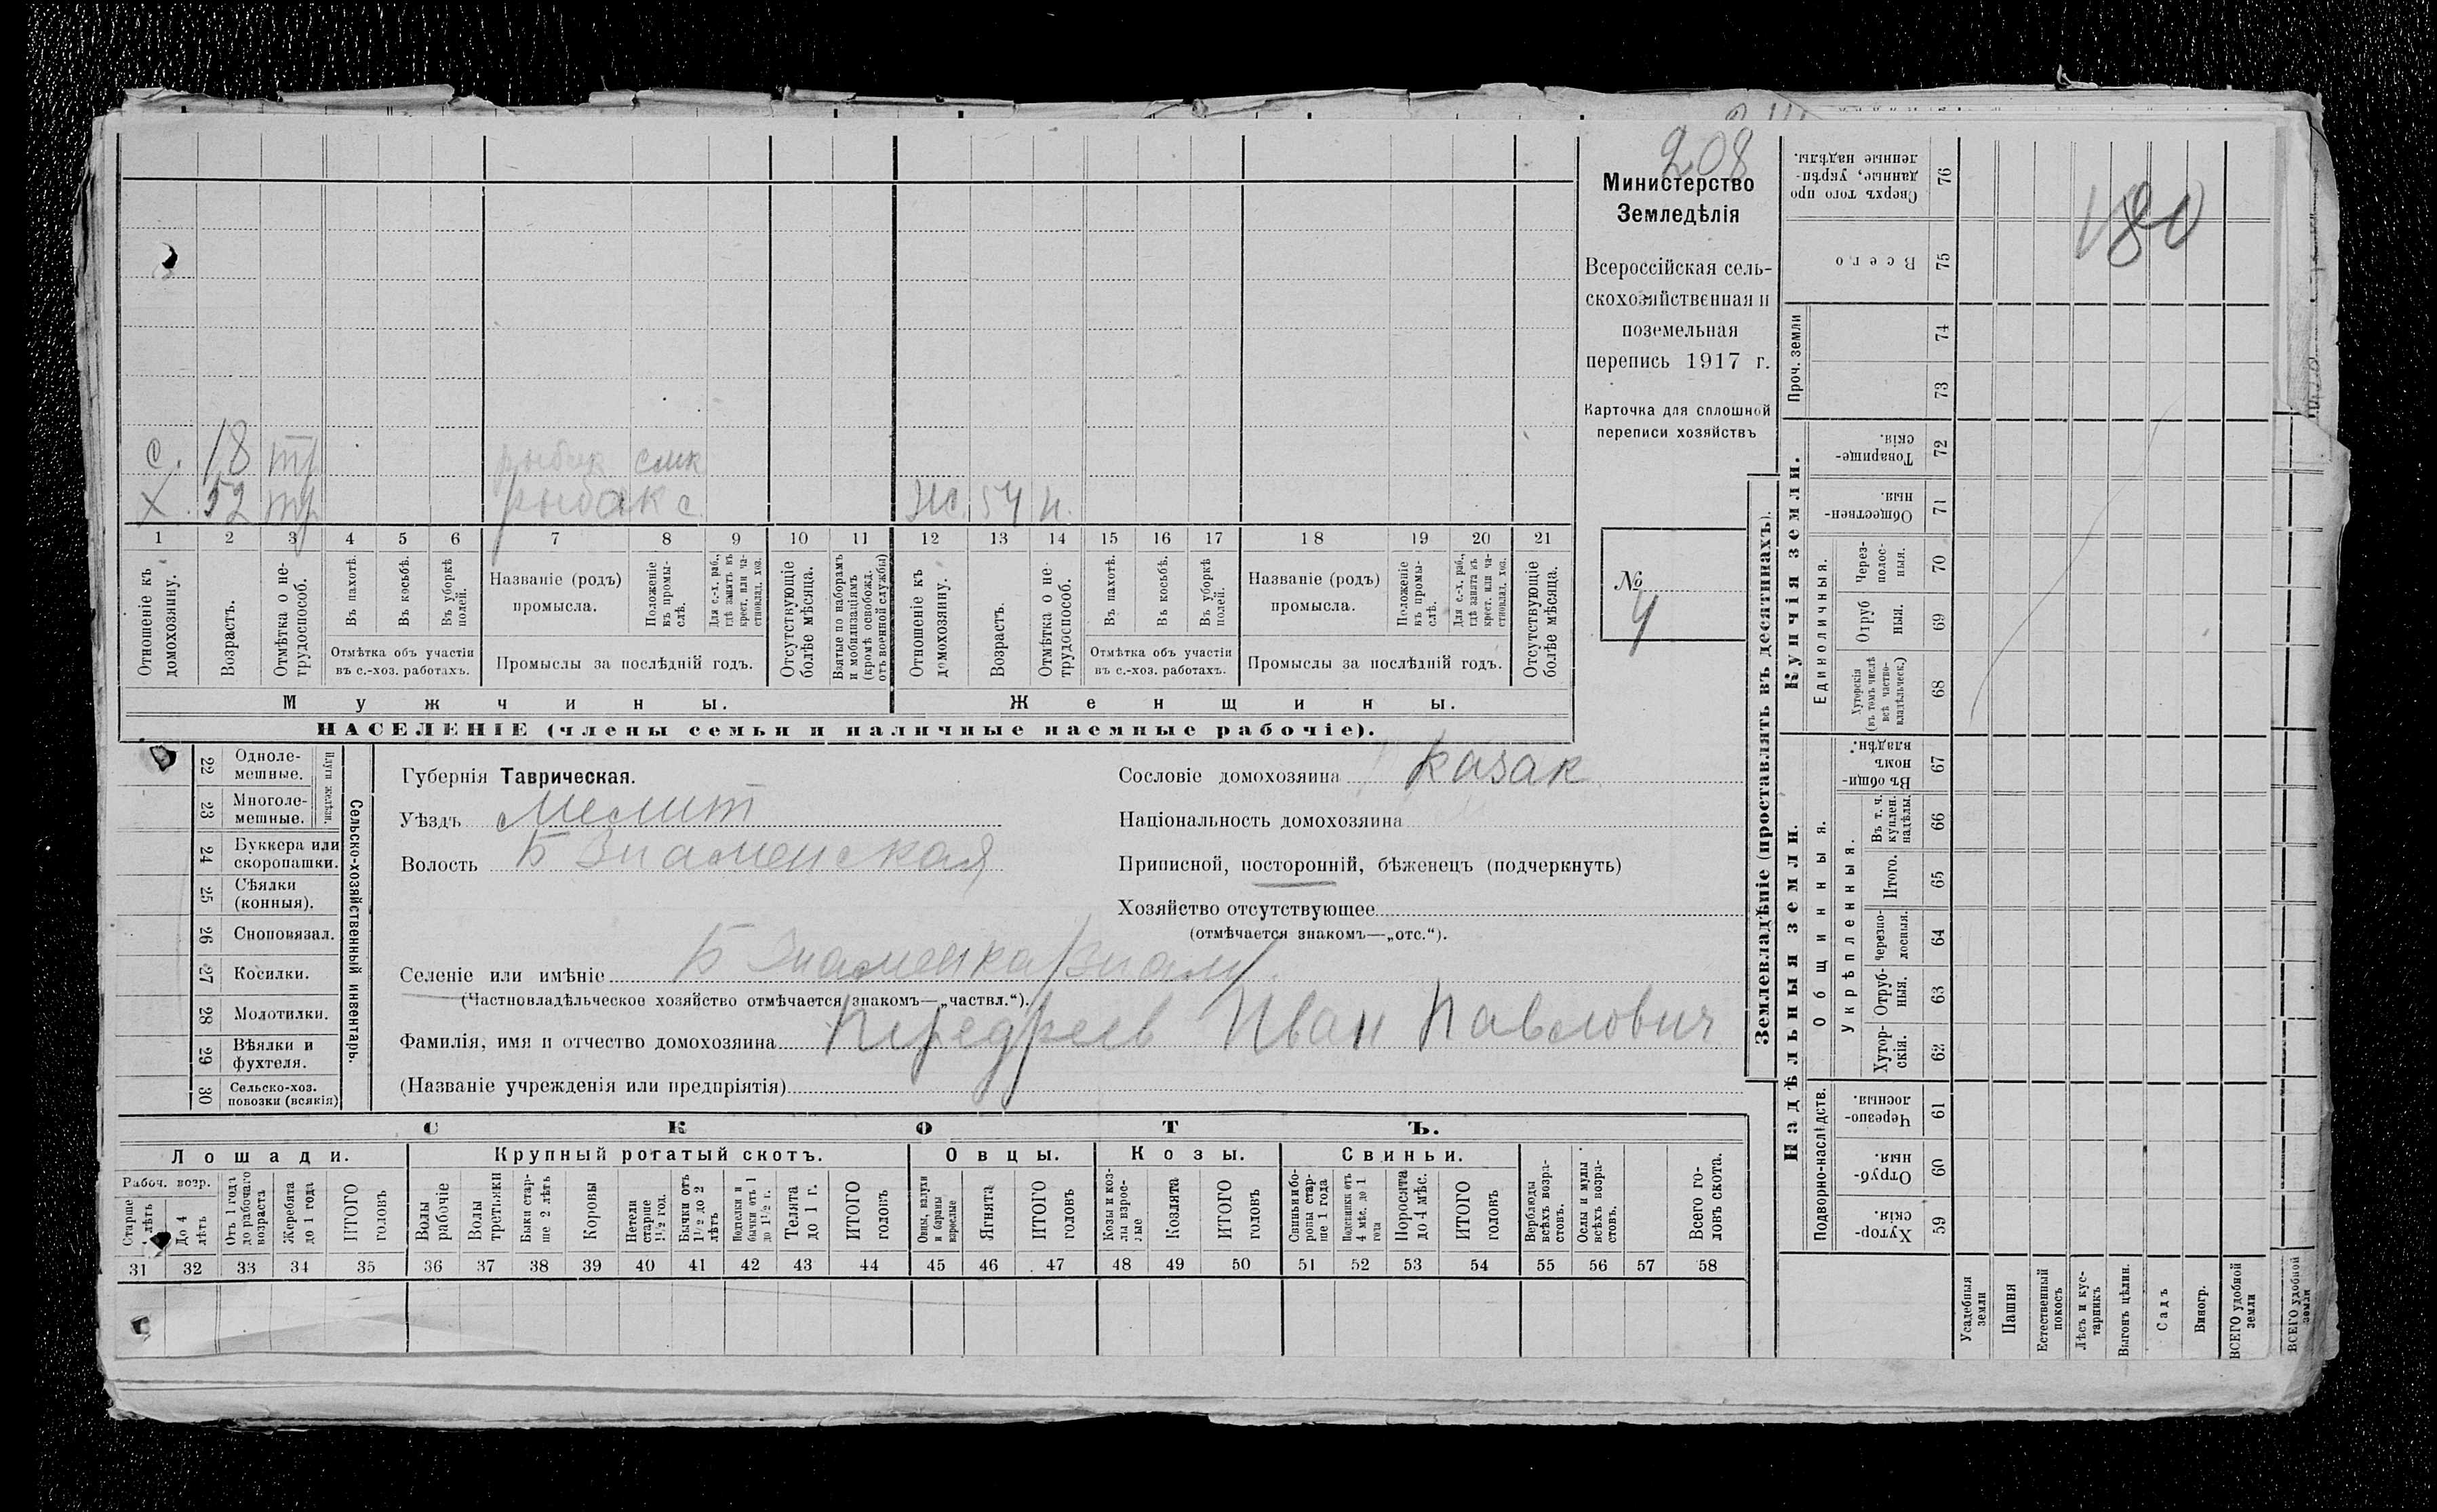 208
Министерство
Земледѣлія
Всероссійская сель-
скохозяйственная и
поземельная
перепись 1917 г.
Карточка для сплошной
переписи хозяйствъ
№
4
180
с. 18 тр рыбак
х. 52 тр рыбак с. ж. 54 н.
1 2 3 4 5 6 7 8 9 10 11 12 13 14 15 16 17 18 19 20 21
Отношеніе къ домохозяину.
Возрастъ.
Отмѣтка о не-трудоспособ.
Въ пахотѣ.
Въ косьбѣ.
Въ уборкѣ полей.
Отмѣтка объ участіи
въ с.-хоз. работахъ.
Названіе (родъ)
промысла.
Положеніе въ промы-слѣ.
Для с.-х. раб., гдѣ занятъ въ крест. или ча-стновлад. хоз.
Промыслы за послѣдній годъ.
Отсутствующіе болѣе мѣсяца.
Взятые по наборамъ и мобилизаціямъ (кромѣ освобожд. отъ военной службы)
Отношеніе къ домохозяину.
Возрастъ.
Отмѣтка о не-трудоспособ.
Въ пахотѣ.
Въ косьбѣ.
Въ уборкѣ полей.
Отмѣтка объ участіи
въ с.-хоз. работахъ.
Названіе (родъ)
промысла.
Положеніе въ промы-слѣ.
Для с.-х. раб., гдѣ занята въ крест. или ча-стновлад. хоз.
Промыслы за послѣдній годъ.
Отсутствующіе болѣе мѣсяца.
Мужчины. Женщины.
НАСЕЛЕНІЕ (члены семьи и наличные наемные рабочіе).
22 Одноле-мешные.
23 Многоле-мешные.
Плуги желѣзн.
24 Буккера или скоропашки.
25 Сѣялки (конныя).
26 Сноповязал.
27 Косилки.
28 Молотилки.
29 Вѣялки и фухтеля.
30 Сельско-хоз. повозки (всякія)
Сельско-хозяйственный инвентарь.
Губернія Таврическая.
Уѣздъ Мелит
Волость Б Знаменская
Сословіе домохозяина казак
Національность домохозяина
Приписной, посторонній, бѣженецъ (подчеркнуть)
Хозяйство отсутствующее
(отмѣчается знакомъ—„отс.“).
Селеніе или имѣніе Б Знаменка/Знам/.
(Частновладѣльческое хозяйство отмѣчается знакомъ—„частвл.“).
Фамилія, имя и отчество домохозяина Передреев Иван Павлович
(Названіе учрежденія или предпріятія)
СКОТЪ.
Лошади. Крупный рогатый скотъ. Овцы. Козы. Свиньи.
Рабоч. возр.
Старше 4 лѣтъ
До 4 лѣтъ
Отъ 1 годъ до рабочаго возраста
Жеребята до 1 года
ИТОГО головъ
Волы рабочіе
Волы третьяки
Быки стар-ше 2 лѣтъ
Коровы
Нетели старше 1½ год.
Бычки отъ 1½ до 2 лѣтъ
Подтелки и бычки отъ 1 до 1½ г.
Телята до 1 г.
ИТОГО головъ
Овцы, валухи и бараны взрослые
Ягнята
ИТОГО головъ
Козы и коз-лы взрос-лые
Козлята
ИТОГО головъ
Свиньи и бо-ровы стар-ше 1 года
Подсвинки отъ 4 мѣс. до 1 года
Поросята до 4 мѣс.
ИТОГО головъ
Верблюды всѣхъ возра-стовъ.
Ослы и мулы всѣхъ возра-стовъ.
Всего го-ловъ скота.
31 32 33 34 35 36 37 38 39 40 41 42 43 44 45 46 47 48 49 50 51 52 53 54 55 56 57 58
Землевладѣніе (проставлять въ десятинахъ).
Сверхъ того про-данные, укрѣп-ленные надѣлы. 76
Всего 75
Проч. земли 74 73
Купчія земли.
Товарище-скія. 72
Обществен-ныя. 71
Единоличныя.
Через-полос-ныя. 70
Отруб ныя. 69
Хуторскія (въ томъ числѣ всѣ частно-владѣльческ.) 68
Надѣльныя земли.
Общинныя.
Въ общин-номъ владѣн. 67
Укрѣпленныя.
Въ т. ч. куплен. надѣлы. 66
Итого. 65
Черезпо-лосныя. 64
Отруб-ныя. 63
Хутор-скія. 62
Подворно-наслѣдств.
Черезпо-лосныя. 61
Отруб-ныя. 60
Хутор-скія. 59
Усадебныя земли
Пашня
Естественный покосъ
Лѣсъ и кус-тарникъ
Выгонъ цѣлин.
Садъ
Виногр.
ВСЕГО удобной земли
ВСЕГО удобной земли